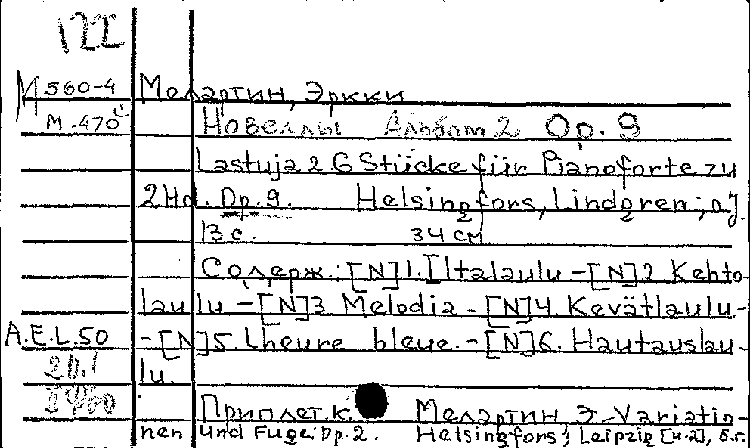 122
М 560-4 Мелартин, Эркки
М.470
Новеллы Альбом 2 Op. 9
Lastuja 2 6 Stücke für Pianoforte zu
2 Hd. Op. 9. Helsingfors, Lindgren; a.
13 с. 34 см
Содерж.: [N]1. Iltalaulu - [N]2 Kehto-
laulu - [N]3 Melodia - [N]4. Kevätlaulu-
A.E.L.50 - [N]5. Lheure bleue. - [N]6. Hautauslau-
20.1 lu.
Приплет. к. Мелартин Э. Variatio-
nen und Fuge. Op. 2. Helsingfors; Leipzig [s.a], s.r